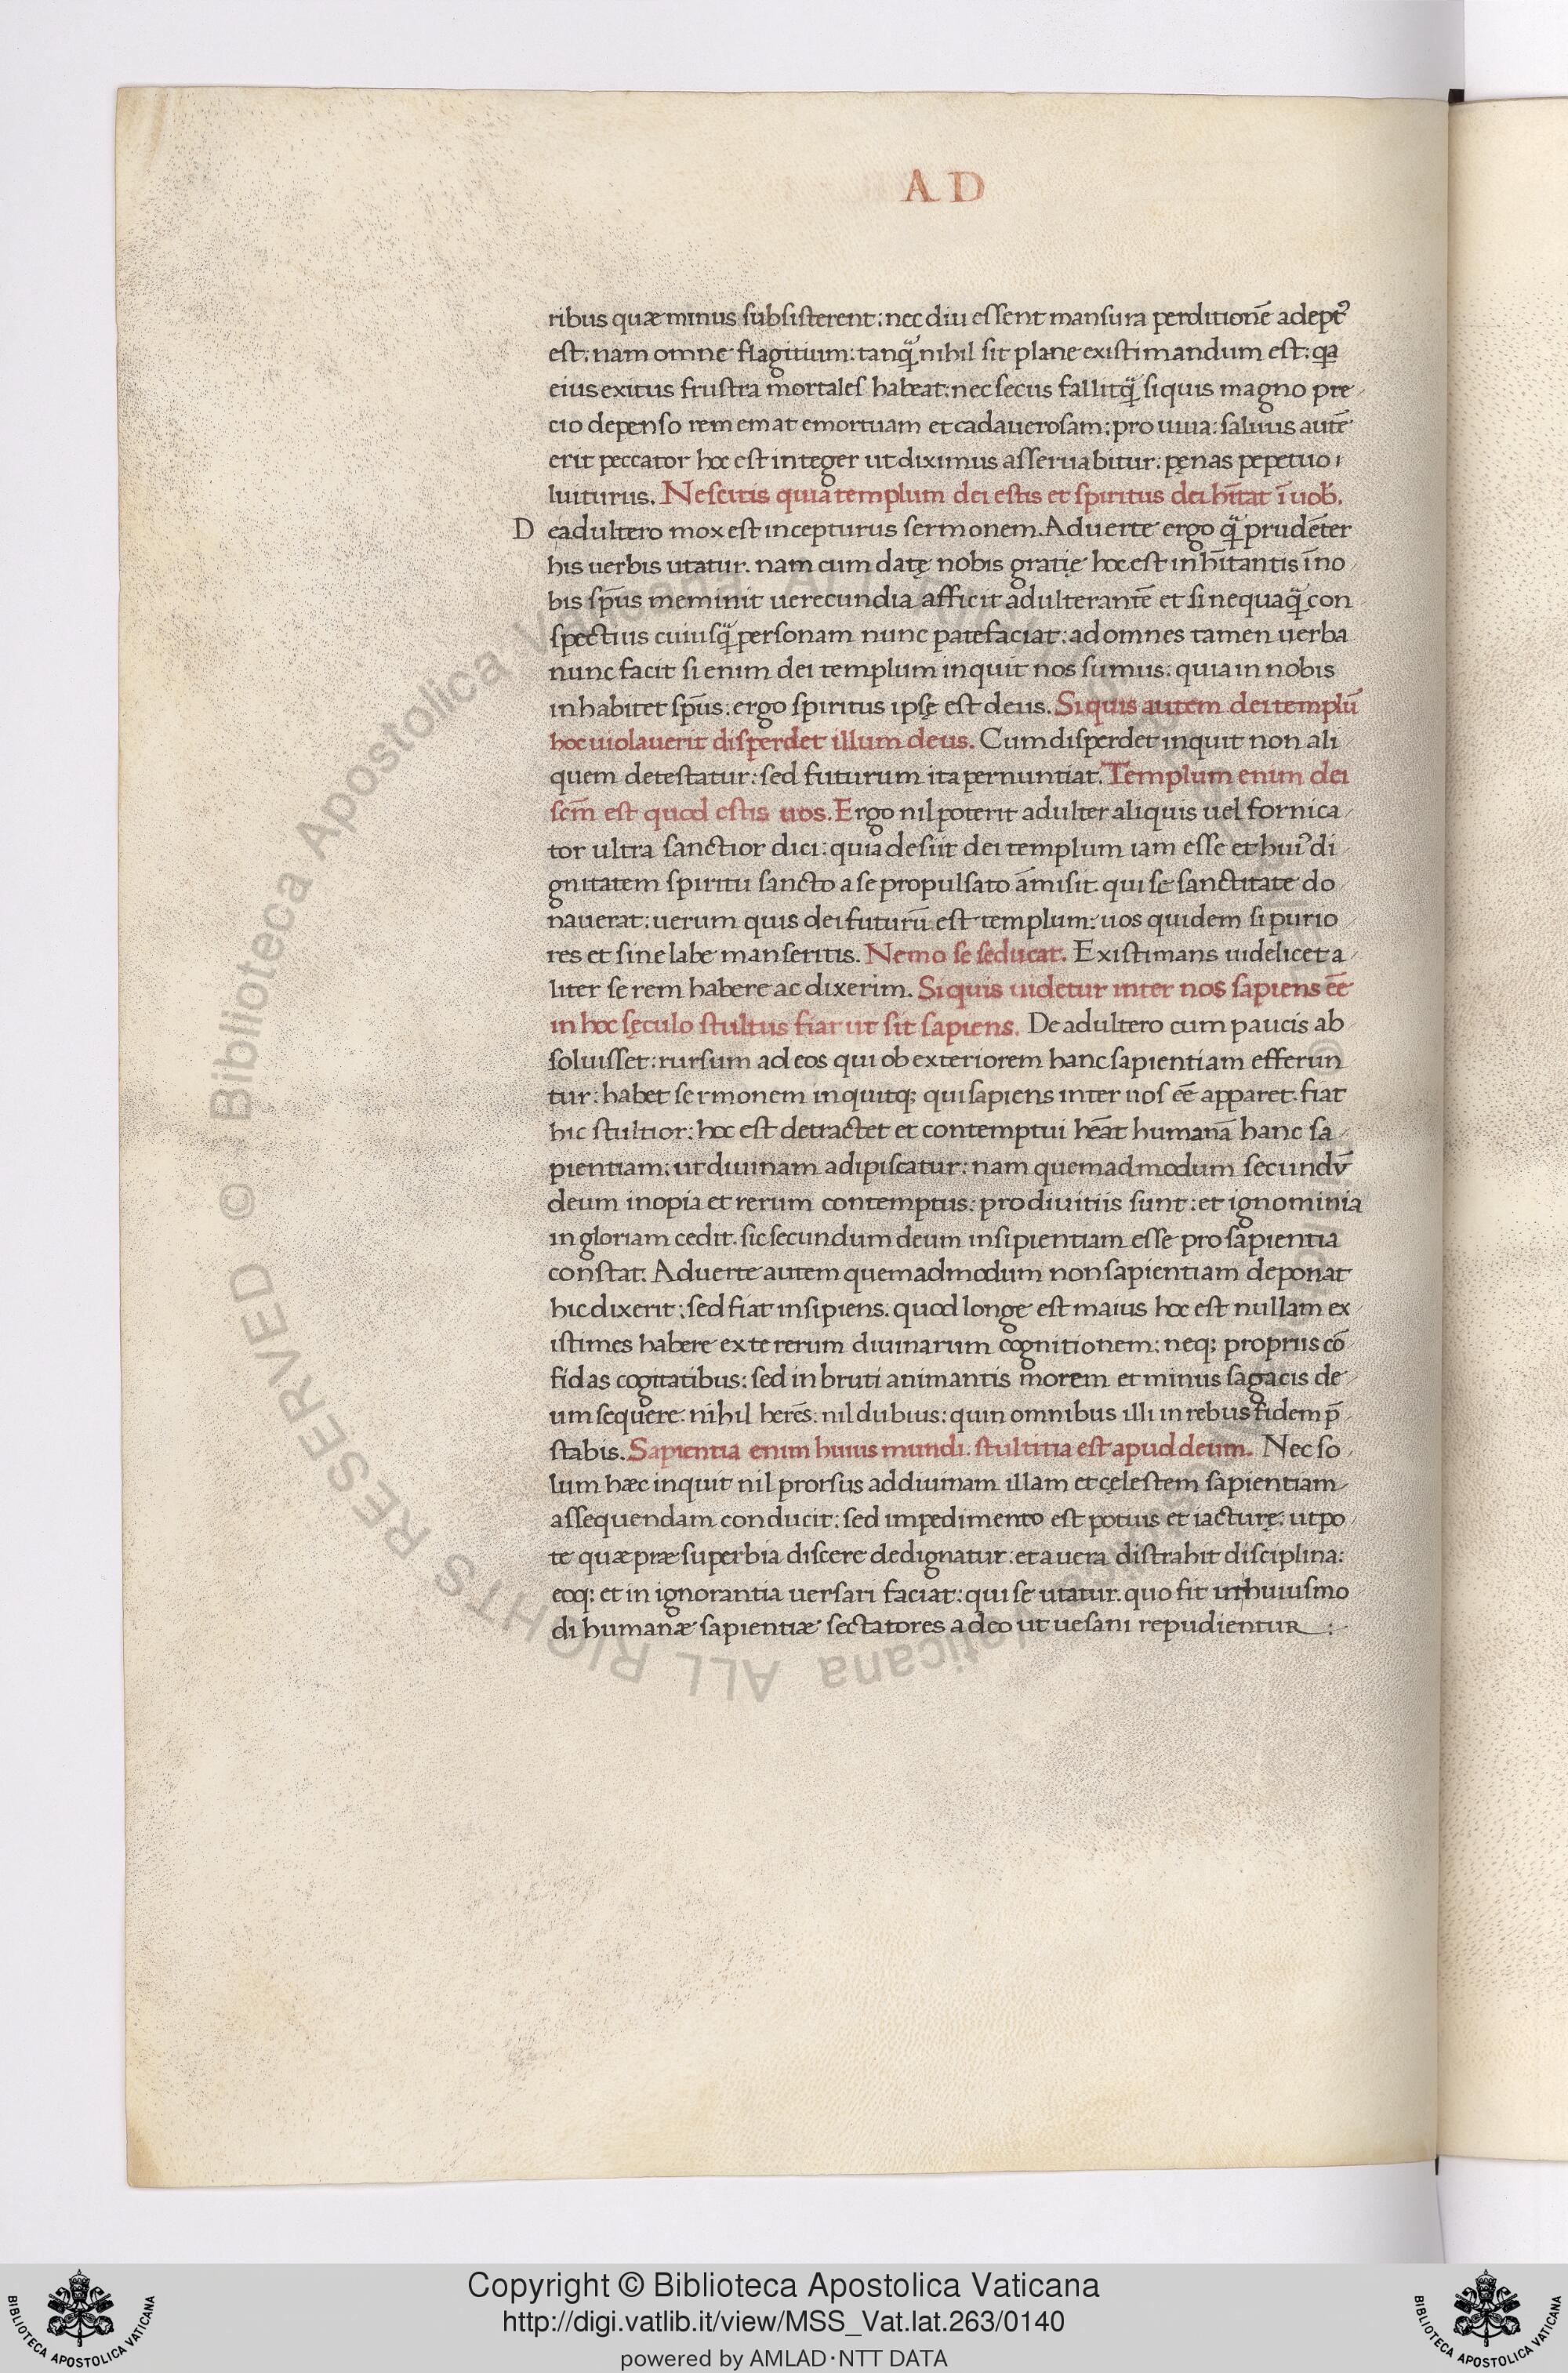 A D
ribus quæ minus subsisterent: nec diu essent mansura perditionē adeptꝰ
est: nam omne flagitium: tanq̃ nihil sit plane existimandum est: qa
eius exitus frustra mortales habeat: nec secus fallitq̃ siquis magno pre
cio depenso rem emat emortuam et cadauerosam: pro uiua: saluus autē
erit peccator hoc est integer ut diximus asseruabitur: pęnas pepetuo
luiturus. Nescitis quia templum dei estis et spiritus dei hītat ī uob̃.
D eadultero mox est incepturus sermonem. Aduerte ergo q̃ prudēter
his uerbis utatur. nam cum datę nobis gratię hoc est inhītantis ī no
bis sp̄us meminit uerecundia afficit adulterantē et si nequaq̃ con
spectius cuiusq̃ personam nunc patefaciat: ad omnes tamen uerba
nunc facit si enim dei templum inquit nos sumus: quia in nobis
inhabitet sp̄us: ergo spiritus ipsę est deus. Siquis autem dei templū
hoc uiolauerit disperdet illum deus. Cum disperdet inquit non ali
quem detestatur: sed futurum ita pernuntiat. Templum enim dei
scm̄ est quod estis uos. Ergo nil poterit adulter aliquis uel fornica
tor ultra sanctior dici: quia desiit dei templum iam esse et huiꝰ di
gnitatem spiritu sancto a se propulsato āmisit. qui se sanctitate do
nauerat: uerum quis dei futurū est templum: uos quidem si purio
res et sine labe manseritis. Nemo se seducat. Existimans uidelicet a
liter se rem habere ac dixerim. Siquis uidetur inter nos sapiens eē
in hoc sęculo stultus fiat ut sit sapiens. De adultero cum paucis ab
soluisset: rursum ad eos qui ob exteriorem hanc sapientiam efferun
tur: habet sermonem inquitq; qui sapiens inter uos eē apparet. fiat
hic stultior: hoc est detractet et contemptui hēat humanā hanc sa
pientiam: ut diuinam adipiscatur: nam quemadmodum secundū
deum inopia et rerum contemptus: pro diuitiis sunt: et ignominia
in gloriam cedit. sic secundum deum insipientiam esse pro sapientia
constat. Aduerte autem quemadmodum non sapientiam deponat
hic dixerit: sed fiat insipiens. quod longe est maius hoc est nullam ex
istimes habere ex te rerum diuinarum cognitionem: neq; propriis cō
fidas cogitatibus: sed in bruti animantis morem et minus sagacis de
um sequere. nihil herēs: nil dubius: quin omnibus illi in rebus fidem p̄
stabis. Sapientia enim huius mundi. stultitia est apud deum. Nec so
lum hæc inquit nil prorsus ad diuinam illam et cęlestem sapientiam
assequendam conducit: sed impedimento est potius et iacturę: utpo
te quæ præ superbia discere dedignatur: et a uera distrahit disciplina:
eoq; et in ignorantia uersari faciat: qui se utatur. quo fit ut huiusmo
di humanæ sapientiæ sectatores adeo ut uesani repudientur :
© Biblioteca Apostolica Vaticana ALL RIGHTS RESERVED
Copyright © Biblioteca Apostolica Vaticana
http://digi.vatlib.it/view/MSS_Vat.lat.263/0140
powered by AMLAD·NTT DATA
BIBLIOTECA APOSTOLICA VATICANA
BIBLIOTECA APOSTOLICA VATICANA